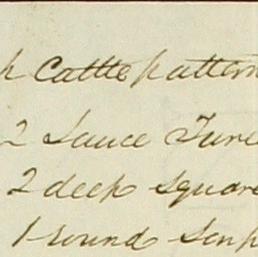 h Cattle pattern
2 Sauce Ture
2 deep square
1 round